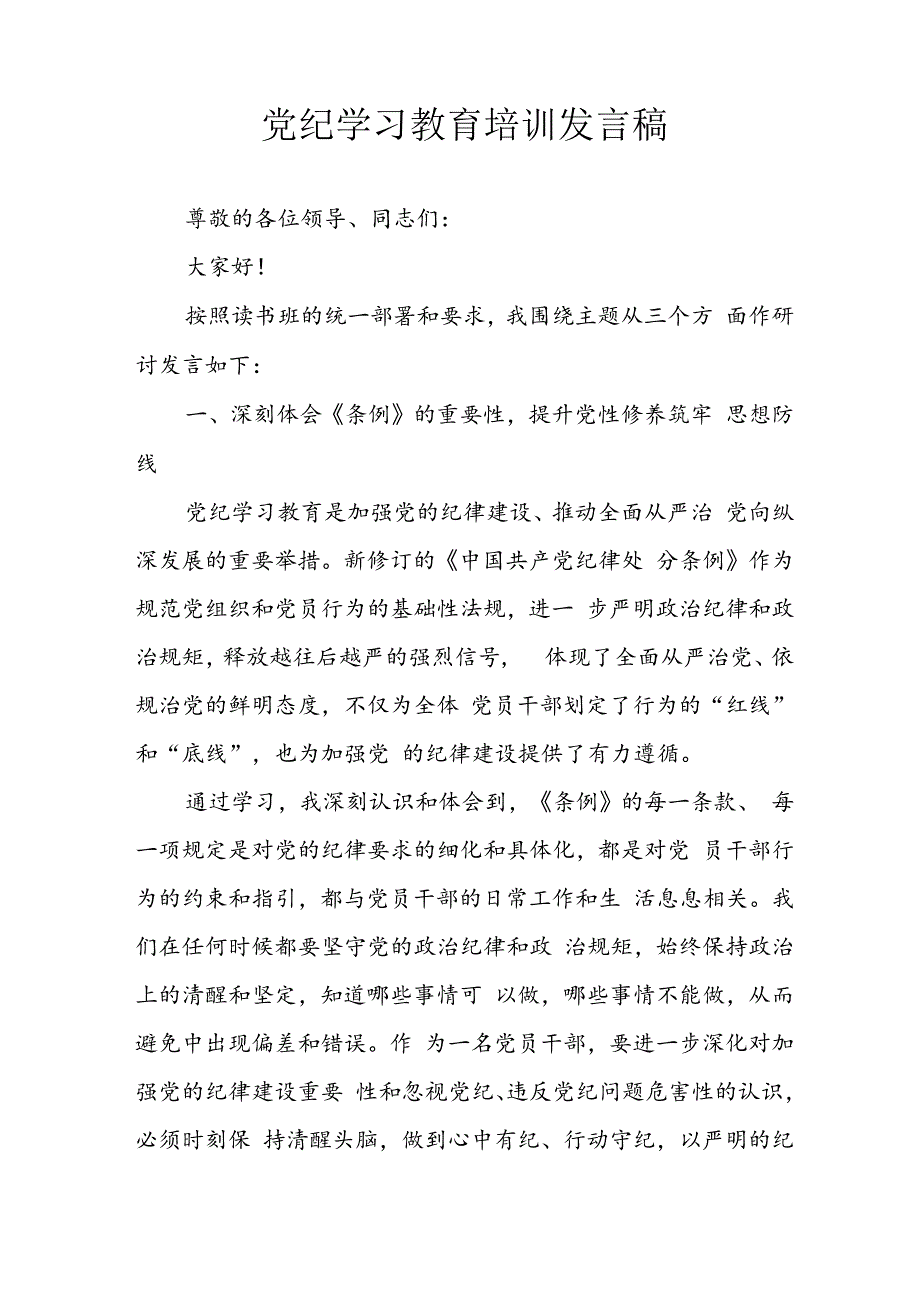 党纪学习教育培训发言稿
尊敬的各位领导、同志们：
大家好！
按照读书班的统一部署和要求，我围绕主题从三个方 面作研
讨发言如下：
一、深刻体会《条例》的重要性，提升党性修养筑牢 思想防
线
党纪学习教育是加强党的纪律建设、推动全面从严治 党向纵
深发展的重要举措。新修订的《中国共产党纪律处 分条例》作为
规范党组织和党员行为的基础性法规，进一 步严明政治纪律和政
治规矩，释放越往后越严的强烈信号， 体现了全面从严治党、依
规治党的鲜明态度，不仅为全体 党员干部划定了行为的“红线”
和“底线”，也为加强党 的纪律建设提供了有力遵循。
通过学习，我深刻认识和体会到，《条例》的每一条款、 每
一项规定是对党的纪律要求的细化和具体化，都是对党 员干部行
为的约束和指引，都与党员干部的日常工作和生 活息息相关。我
们在任何时候都要坚守党的政治纪律和政 治规矩，始终保持政治
上的清醒和坚定，知道哪些事情可 以做，哪些事情不能做，从而
避免中出现偏差和错误。作 为一名党员干部，要进一步深化对加
强党的纪律建设重要 性和忽视党纪、违反党纪问题危害性的认识，
必须时刻保 持清醒头脑，做到心中有纪、行动守纪，以严明的纪